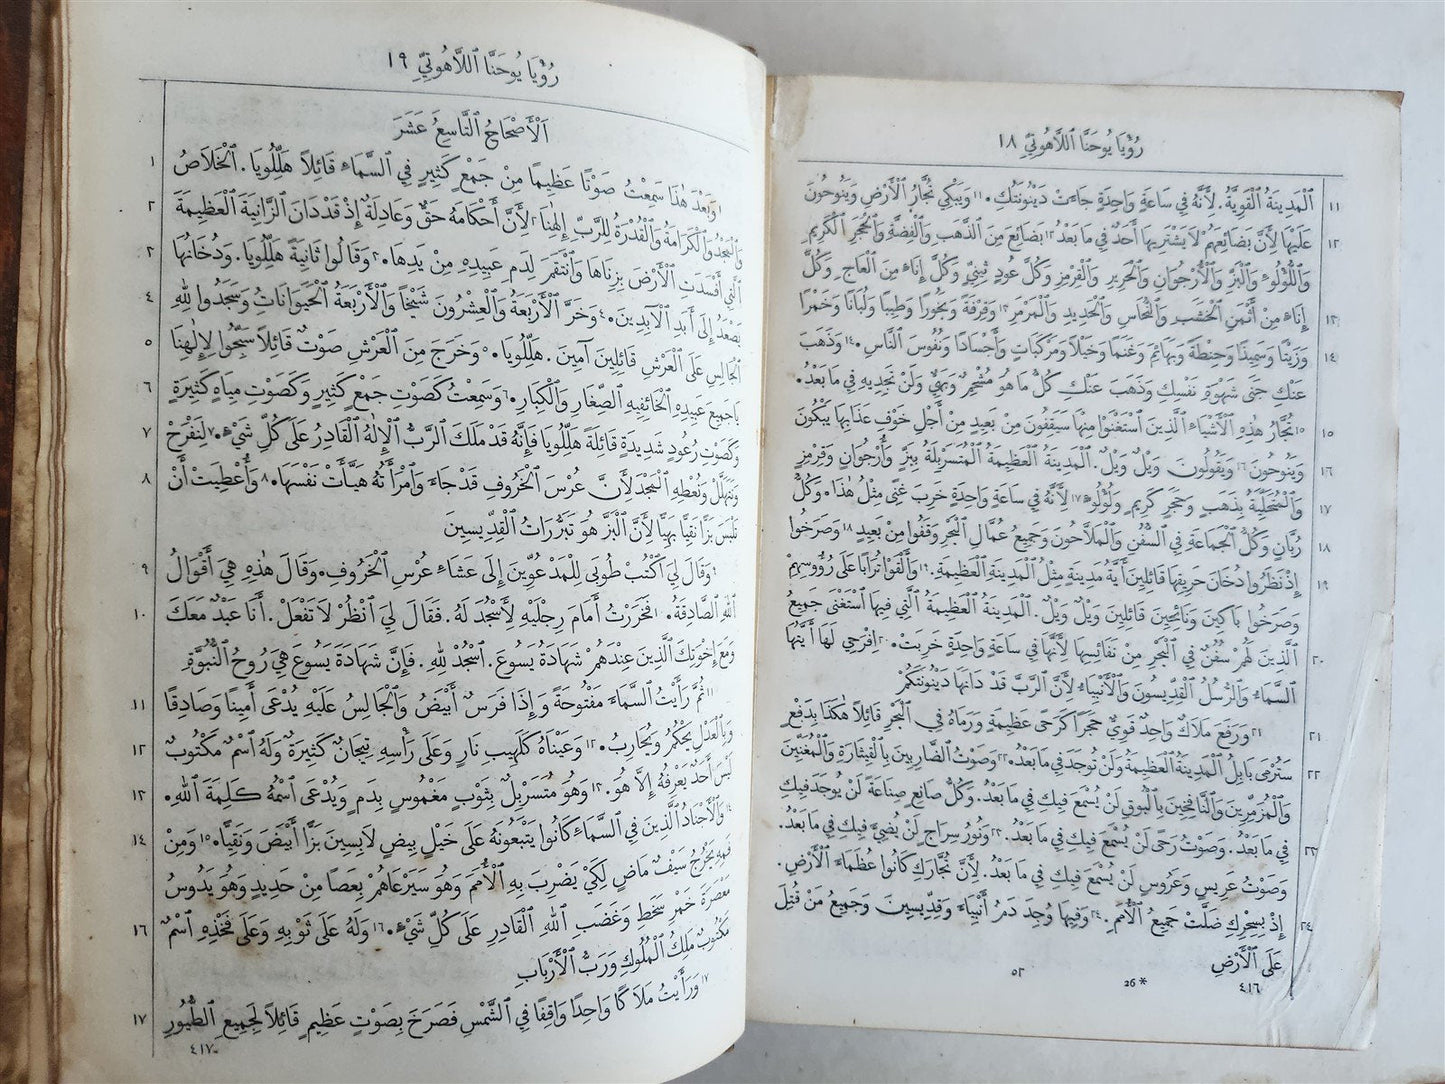 رُؤْيَا يُوحَنَّا ٱللَّاهُوتِيِّ ١٨
١١ ٱلْمَدِينَةُ ٱلْقَوِيَّةُ. لِأَنَّهُ فِي سَاعَةٍ وَاحِدَةٍ جَاءَتْ دَيْنُونَتُكِ. ١١ وَيَبْكِي تُجَّارُ ٱلْأَرْضِ وَيَنُوحُونَ
١٢ عَلَيْهَا لِأَنَّ بَضَائِعَهُمْ لَا يَشْتَرِيهَا أَحَدٌ فِي مَا بَعْدُ ١٢ بَضَائِعَ مِنَ ٱلذَّهَبِ وَٱلْفِضَّةِ وَٱلْحَجَرِ ٱلْكَرِيمِ
وَٱللُّؤْلُؤِ وَٱلْبَزِّ وَٱلْأُرْجُوَانِ وَٱلْحَرِيرِ وَٱلْقِرْمِزِ وَكُلَّ عُودٍ ثِينِيٍّ وَكُلَّ إِنَاءٍ مِنَ ٱلْعَاجِ وَكُلَّ
١٣ إِنَاءٍ مِنْ أَثْمَنِ ٱلْخَشَبِ وَٱلنُّحَاسِ وَٱلْحَدِيدِ وَٱلْمَرْمَرِ ١٣ وَقِرْفَةً وَبَخُورًا وَطِيبًا وَلُبَانًا وَخَمْرًا
١٤ وَزَيْتًا وَسَمِيذًا وَحِنْطَةً وَبَهَائِمَ وَغَنَمًا وَخَيْلًا وَمَرْكَبَاتٍ وَأَجْسَادًا وَنُفُوسَ ٱلنَّاسِ. ١٤ وَذَهَبَ
عَنْكِ جَنَى شَهْوَةِ نَفْسِكِ وَذَهَبَ عَنْكِ كُلُّ مَا هُوَ مُشْحِمٌ وَبَهِيٌّ وَلَنْ تَجِدِيهِ فِي مَا بَعْدُ.
١٥ ١٥ تُجَّارُ هٰذِهِ ٱلْأَشْيَاءِ ٱلَّذِينَ ٱسْتَغْنَوْا مِنْهَا سَيَقِفُونَ مِنْ بَعِيدٍ مِنْ أَجْلِ خَوْفِ عَذَابِهَا يَبْكُونَ
١٦ وَيَنُوحُونَ ١٦ وَيَقُولُونَ وَيْلٌ وَيْلٌ. ٱلْمَدِينَةُ ٱلْعَظِيمَةُ ٱلْمُتَسَرْبِلَةُ بِبَزٍّ وَأُرْجُوَانٍ وَقِرْمِزٍ
١٧ وَٱلْمُتَحَلِّيَةُ بِذَهَبٍ وَحَجَرٍ كَرِيمٍ وَلُؤْلُؤٍ ١٧ لِأَنَّهُ فِي سَاعَةٍ وَاحِدَةٍ خَرِبَ غِنًى مِثْلُ هٰذَا. وَكُلُّ
١٨ رُبَّانٍ وَكُلُّ ٱلْجَمَاعَةِ فِي ٱلسُّفُنِ وَٱلْمَلَّاحُونَ وَجَمِيعُ عُمَّالِ ٱلْبَحْرِ وَقَفُوا مِنْ بَعِيدٍ ١٨ وَصَرَخُوا
١٩ إِذْ نَظَرُوا دُخَانَ حَرِيقِهَا قَائِلِينَ أَيَّةُ مَدِينَةٍ مِثْلُ ٱلْمَدِينَةِ ٱلْعَظِيمَةِ. ١٩ وَأَلْقَوْا تُرَابًا عَلَى رُؤُوسِهِمْ
وَصَرَخُوا بَاكِينَ وَنَائِحِينَ قَائِلِينَ وَيْلٌ وَيْلٌ. ٱلْمَدِينَةُ ٱلْعَظِيمَةُ ٱلَّتِي فِيهَا ٱسْتَغْنَى جَمِيعُ
٢٠ ٱلَّذِينَ لَهُمْ سُفُنٌ فِي ٱلْبَحْرِ مِنْ نَفَائِسِهَا لِأَنَّهَا فِي سَاعَةٍ وَاحِدَةٍ خَرِبَتْ. ٢٠ اِفْرَحِي لَهَا أَيَّتُهَا
ٱلسَّمَاءُ وَٱلرُّسُلُ ٱلْقِدِّيسُونَ وَٱلْأَنْبِيَاءُ لِأَنَّ ٱلرَّبَّ قَدْ دَانَهَا دَيْنُونَتَكُمْ
٢١ ٢١ وَرَفَعَ مَلَاكٌ وَاحِدٌ قَوِيٌّ حَجَرًا كَرَحًى عَظِيمَةٍ وَرَمَاهُ فِي ٱلْبَحْرِ قَائِلًا هٰكَذَا بِدَفْعٍ
٢٢ سَتُرْمَى بَابِلُ ٱلْمَدِينَةُ ٱلْعَظِيمَةُ وَلَنْ تُوجَدَ فِي مَا بَعْدُ. ٢٢ وَصَوْتُ ٱلضَّارِبِينَ بِٱلْقِيثَارَةِ وَٱلْمُغَنِّينَ
وَٱلْمُزَمِّرِينَ وَٱلنَّافِخِينَ بِٱلْبُوقِ لَنْ يُسْمَعَ فِيكِ فِي مَا بَعْدُ. وَكُلُّ صَانِعٍ صِنَاعَةً لَنْ يُوجَدَ فِيكِ
٢٣ فِي مَا بَعْدُ. وَصَوْتُ رَحًى لَنْ يُسْمَعَ فِيكِ فِي مَا بَعْدُ. ٢٣ وَنُورُ سِرَاجٍ لَنْ يُضِيءَ فِيكِ فِي مَا بَعْدُ.
وَصَوْتُ عَرِيسٍ وَعَرُوسٍ لَنْ يُسْمَعَ فِيكِ فِي مَا بَعْدُ. لِأَنَّ تُجَّارَكِ كَانُوا عُظَمَاءَ ٱلْأَرْضِ.
٢٤ إِذْ بِسِحْرِكِ ضَلَّتْ جَمِيعُ ٱلْأُمَمِ. ٢٤ وَفِيهَا وُجِدَ دَمُ أَنْبِيَاءَ وَقِدِّيسِينَ وَجَمِيعِ مَنْ قُتِلَ
عَلَى ٱلْأَرْضِ
٤١٦ 26* ٥٢
رُؤْيَا يُوحَنَّا ٱللَّاهُوتِيِّ ١٩
اَلْأَصْحَاحُ ٱلتَّاسِعُ عَشَرَ
١ ١ وَبَعْدَ هٰذَا سَمِعْتُ صَوْتًا عَظِيمًا مِنْ جَمْعٍ كَثِيرٍ فِي ٱلسَّمَاءِ قَائِلًا هَلِّلُويَا. ٱلْخَلَاصُ
٢ وَٱلْمَجْدُ وَٱلْكَرَامَةُ وَٱلْقُدْرَةُ لِلرَّبِّ إِلٰهِنَا ٢ لِأَنَّ أَحْكَامَهُ حَقٌّ وَعَادِلَةٌ إِذْ قَدْ دَانَ ٱلزَّانِيَةَ ٱلْعَظِيمَةَ
٣ ٱلَّتِي أَفْسَدَتِ ٱلْأَرْضَ بِزِنَاهَا وَٱنْتَقَمَ لِدَمِ عَبِيدِهِ مِنْ يَدِهَا. ٣ وَقَالُوا ثَانِيَةً هَلِّلُويَا. وَدُخَانُهَا
٤ يَصْعَدُ إِلَى أَبَدِ ٱلْآبِدِينَ. ٤ وَخَرَّ ٱلْأَرْبَعَةُ وَٱلْعِشْرُونَ شَيْخًا وَٱلْأَرْبَعَةُ ٱلْحَيَوَانَاتُ وَسَجَدُوا لِلّٰهِ
٥ ٱلْجَالِسِ عَلَى ٱلْعَرْشِ قَائِلِينَ آمِينَ. هَلِّلُويَا. ٥ وَخَرَجَ مِنَ ٱلْعَرْشِ صَوْتٌ قَائِلًا سَبِّحُوا لِإِلٰهِنَا
٦ يَا جَمِيعَ عَبِيدِهِ ٱلْخَائِفِيهِ ٱلصِّغَارِ وَٱلْكِبَارِ. ٦ وَسَمِعْتُ كَصَوْتِ جَمْعٍ كَثِيرٍ وَكَصَوْتِ مِيَاهٍ كَثِيرَةٍ
٧ وَكَصَوْتِ رُعُودٍ شَدِيدَةٍ قَائِلَةً هَلِّلُويَا فَإِنَّهُ قَدْ مَلَكَ ٱلرَّبُّ ٱلْإِلٰهُ ٱلْقَادِرُ عَلَى كُلِّ شَيْءٍ. ٧ لِنَفْرَحْ
٨ وَنَتَهَلَّلْ وَنُعْطِهِ ٱلْمَجْدَ لِأَنَّ عُرْسَ ٱلْخَرُوفِ قَدْ جَاءَ وَٱمْرَأَتُهُ هَيَّأَتْ نَفْسَهَا. ٨ وَأُعْطِيَتْ أَنْ
تَلْبَسَ بَزًّا نَقِيًّا بَهِيًّا لِأَنَّ ٱلْبَزَّ هُوَ تَبَرُّرَاتُ ٱلْقِدِّيسِينَ
٩ ٩ وَقَالَ لِيَ ٱكْتُبْ طُوبَى لِلْمَدْعُوِّينَ إِلَى عَشَاءِ عُرْسِ ٱلْخَرُوفِ. وَقَالَ هٰذِهِ هِيَ أَقْوَالُ
١٠ ٱللّٰهِ ٱلصَّادِقَةُ. ١٠ فَخَرَرْتُ أَمَامَ رِجْلَيْهِ لِأَسْجُدَ لَهُ. فَقَالَ لِيَ ٱنْظُرْ لَا تَفْعَلْ. أَنَا عَبْدٌ مَعَكَ
وَمَعَ إِخْوَتِكَ ٱلَّذِينَ عِنْدَهُمْ شَهَادَةُ يَسُوعَ. ٱسْجُدْ لِلّٰهِ. فَإِنَّ شَهَادَةَ يَسُوعَ هِيَ رُوحُ ٱلنُّبُوَّةِ
١١ ١١ ثُمَّ رَأَيْتُ ٱلسَّمَاءَ مَفْتُوحَةً وَإِذَا فَرَسٌ أَبْيَضُ وَٱلْجَالِسُ عَلَيْهِ يُدْعَى أَمِينًا وَصَادِقًا
١٢ وَبِٱلْعَدْلِ يَحْكُمُ وَيُحَارِبُ. ١٢ وَعَيْنَاهُ كَلَهِيبِ نَارٍ وَعَلَى رَأْسِهِ تِيجَانٌ كَثِيرَةٌ وَلَهُ ٱسْمٌ مَكْتُوبٌ
١٣ لَيْسَ أَحَدٌ يَعْرِفُهُ إِلَّا هُوَ. ١٣ وَهُوَ مُتَسَرْبِلٌ بِثَوْبٍ مَغْمُوسٍ بِدَمٍ وَيُدْعَى ٱسْمُهُ كَلِمَةَ ٱللّٰهِ.
١٤ ١٤ وَٱلْأَجْنَادُ ٱلَّذِينَ فِي ٱلسَّمَاءِ كَانُوا يَتْبَعُونَهُ عَلَى خَيْلٍ بِيضٍ لَابِسِينَ بَزًّا أَبْيَضَ وَنَقِيًّا. ١٥ وَمِنْ
فَمِهِ يَخْرُجُ سَيْفٌ مَاضٍ لِكَيْ يَضْرِبَ بِهِ ٱلْأُمَمَ وَهُوَ سَيَرْعَاهُمْ بِعَصًا مِنْ حَدِيدٍ وَهُوَ يَدُوسُ
١٦ مَعْصَرَةَ خَمْرِ سَخَطِ وَغَضَبِ ٱللّٰهِ ٱلْقَادِرِ عَلَى كُلِّ شَيْءٍ. ١٦ وَلَهُ عَلَى ثَوْبِهِ وَعَلَى فَخْذِهِ ٱسْمٌ
مَكْتُوبٌ مَلِكُ ٱلْمُلُوكِ وَرَبُّ ٱلْأَرْبَابِ
١٧ ١٧ وَرَأَيْتُ مَلَاكًا وَاحِدًا وَاقِفًا فِي ٱلشَّمْسِ فَصَرَخَ بِصَوْتٍ عَظِيمٍ قَائِلًا لِجَمِيعِ ٱلطُّيُورِ
٤١٧